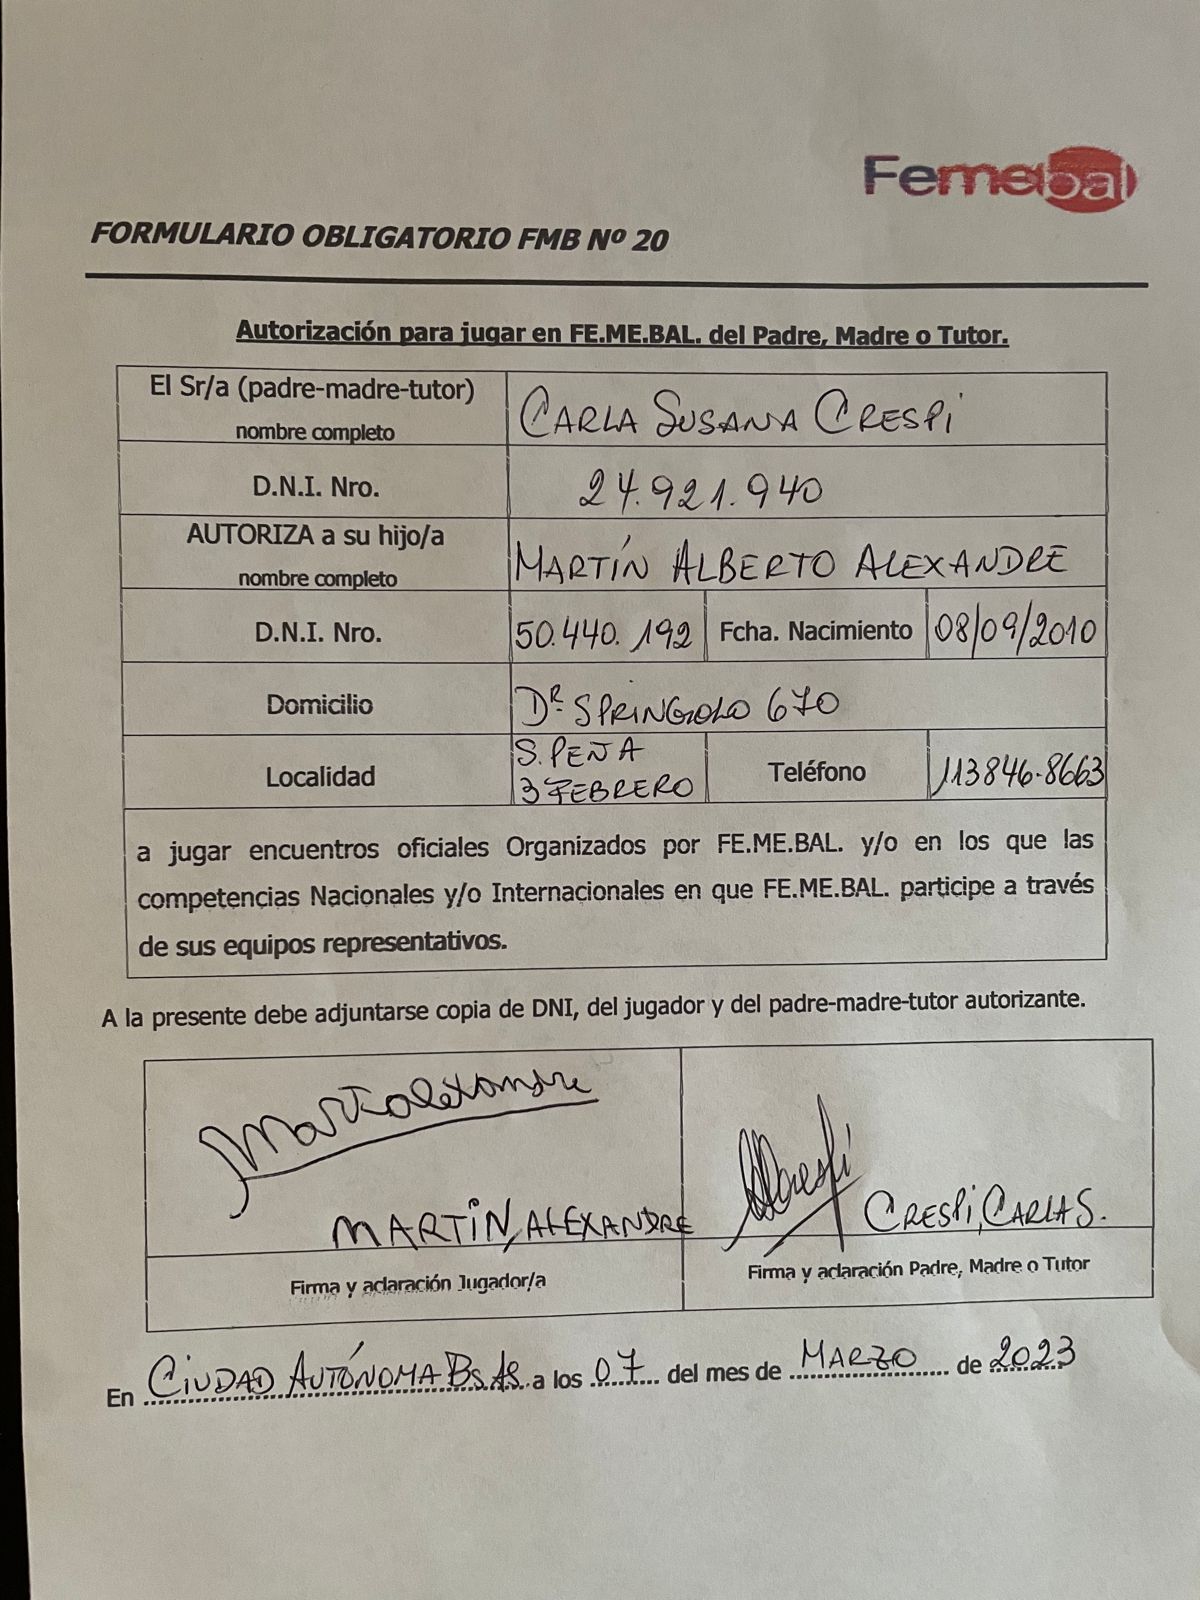 Femebal
FORMULARIO OBLIGATORIO FMB Nº 20
Autorización para jugar en FE.ME.BAL. del Padre, Madre o Tutor.
El Sr/a (padre-madre-tutor)
nombre completo
CARLA SUSANA CRESPI
D.N.I. Nro.
24.921.940
AUTORIZA a su hijo/a
nombre completo
MARTÍN ALBERTO ALEXANDRE
D.N.I. Nro.
50.440.192
Fcha. Nacimiento
08/09/2010
Domicilio
DR. SPRINGOLO 670
Localidad
S. PEÑA
3 FEBRERO
Teléfono
113846-8663
a jugar encuentros oficiales Organizados por FE.ME.BAL. y/o en los que las
competencias Nacionales y/o Internacionales en que FE.ME.BAL. participe a través
de sus equipos representativos.
A la presente debe adjuntarse copia de DNI, del jugador y del padre-madre-tutor autorizante.
Martalexandre
MARTÍN, ALEXANDRE
Firma y aclaración Jugador/a
Crespi
CRESPI, CARLA S.
Firma y aclaración Padre, Madre o Tutor
En CIUDAD AUTÓNOMA BS. AS. a los 07 del mes de MARZO de 2023